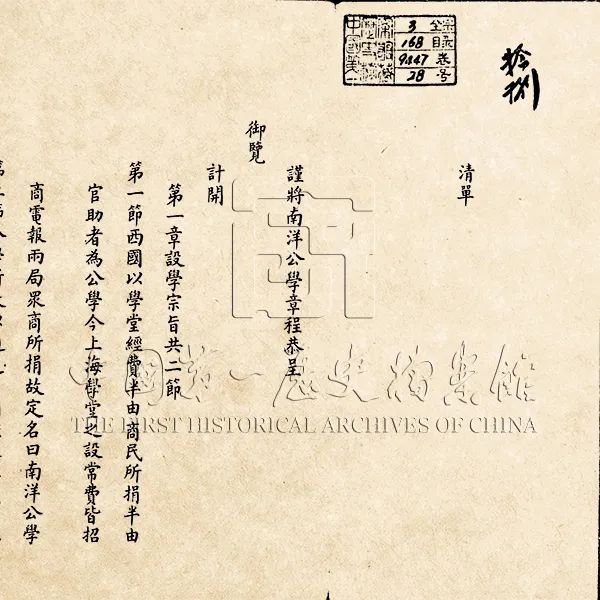 清單
謹將南洋公學章程恭呈
御覽
計開
第一章設學宗旨共二節
第一節西國以學堂經費半由商民所捐半由
官助者為公學今上海學堂之設常費皆招
商電報兩局眾商所捐故定名曰南洋公學
3 全宗
168 目录
9447 卷
28 号
中國第一歷史檔案館
THE FIRST HISTORICAL ARCHIVES OF CHINA